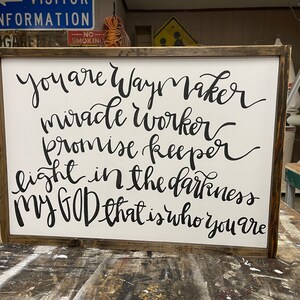 VISITOR
INFORMATION
NO SMOKING
you are Way Maker
miracle worker
promise keeper
light in the darkness
My GOD that is who you are